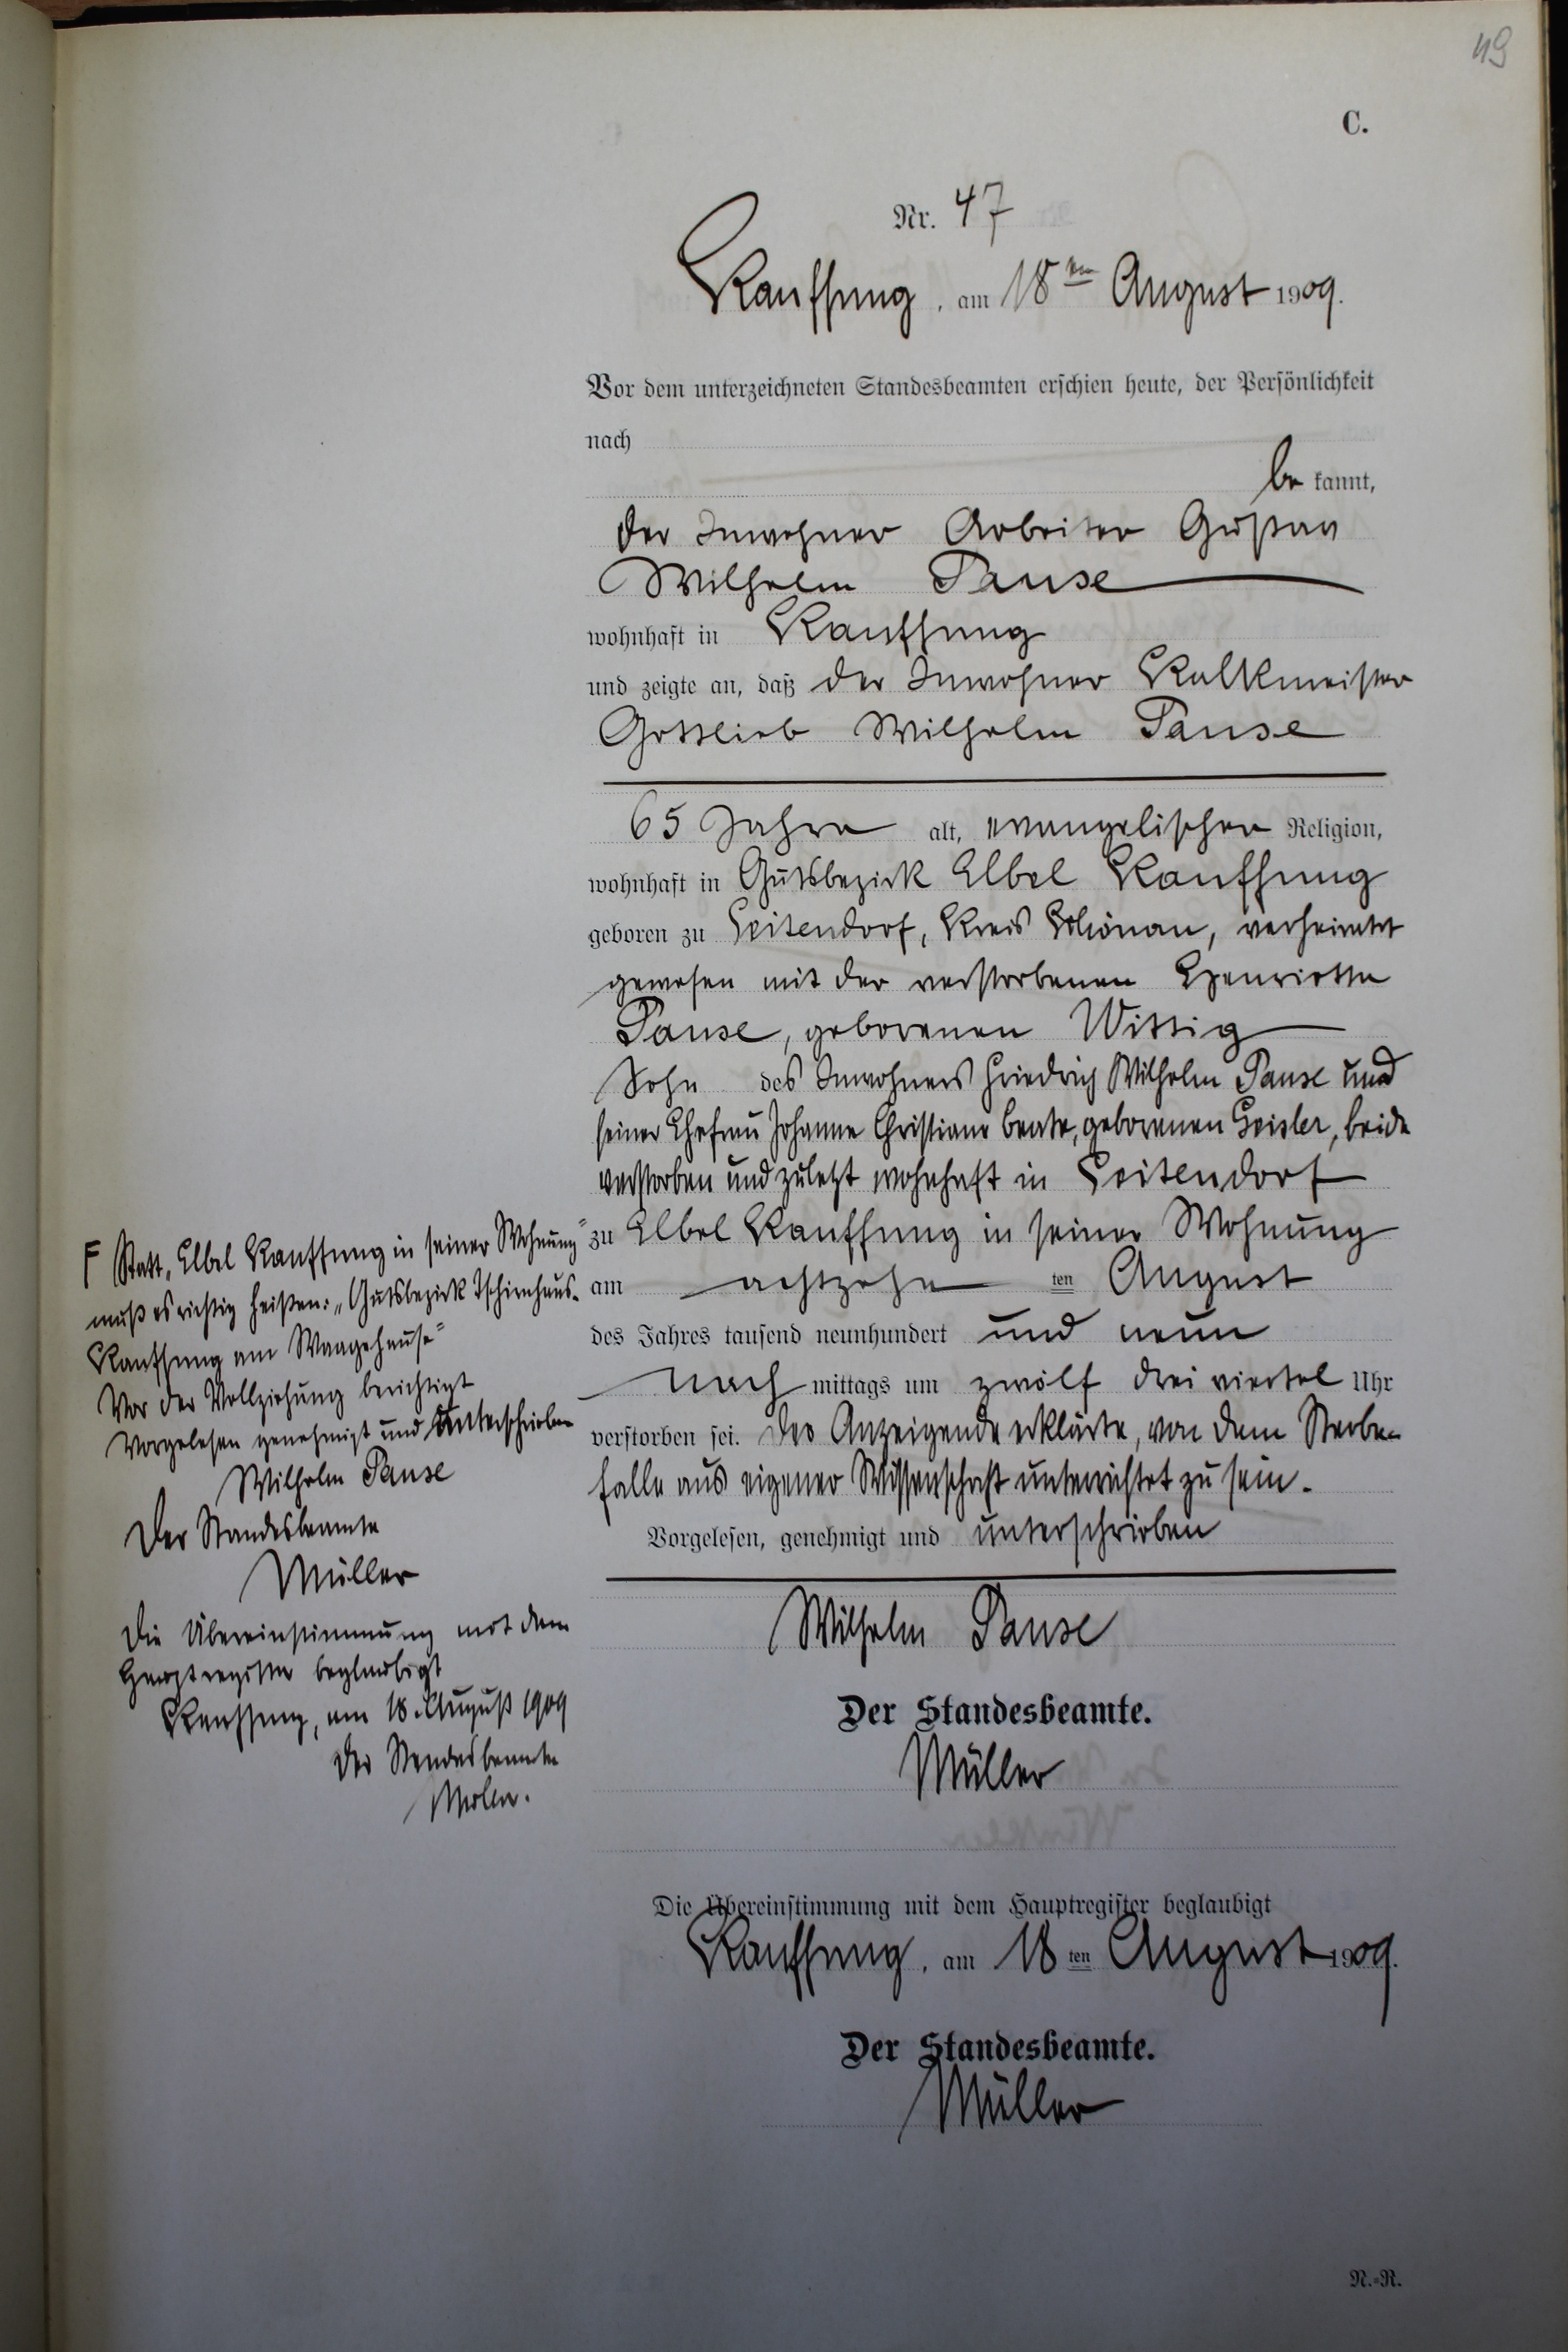 49
C.
Nr. 47
Kauffung, am 18ten August 1909.
Vor dem unterzeichneten Standesbeamten erschien heute, der Persönlichkeit
nach
be kannt,
der Inwohner Arbeiter Gustav
Wilhelm Pause
wohnhaft in Kauffung
und zeigte an, daß der Inwohner Kalkmeister
Gottlieb Wilhelm Pause
65 Jahre alt, evangelischer Religion,
wohnhaft in Gutsbezirk Elbel Kauffung
geboren zu Seitendorf, Kreis Schönau, verheiratet
gewesen mit der verstorbenen Henriette
Pause, geborenen Wittig
Sohn des Inwohners Friedrich Wilhelm Pause und
seiner Ehefrau Johanne Christiane Beate, geborenen Geisler, beide
verstorben und zuletzt wohnhaft in Seitendorf
zu Elbel Kauffung in seiner Wohnung
am achtzehn ten August
des Jahres tausend neunhundert und neun
nach mittags um zwölf drei viertel Uhr
verstorben sei. Der Anzeigende erklärte, von dem Sterbe-
falle aus eigener Wissenschaft unterrichtet zu sein.
Vorgelesen, genehmigt und unterschrieben
Wilhelm Pause
Der Standesbeamte.
Müller
Die Übereinstimmung mit dem Hauptregister beglaubigt
Kauffung, am 18 ten August 1909.
Der Standesbeamte.
Müller
N.-R.
F Statt „Elbel Kauffung in seiner Wohnung"
muß es richtig heißen: „Gutsbezirk Tschirnhaus-
Kauffung am Waagehause"
Vor der Vollziehung berichtigt
Vorgelesen genehmigt und unterschrieben
Wilhelm Pause
Der Standesbeamte
Müller
Die Übereinstimmung mit dem
Hauptregister beglaubigt
Kauffung, am 18. August 1909
Der Standesbeamte